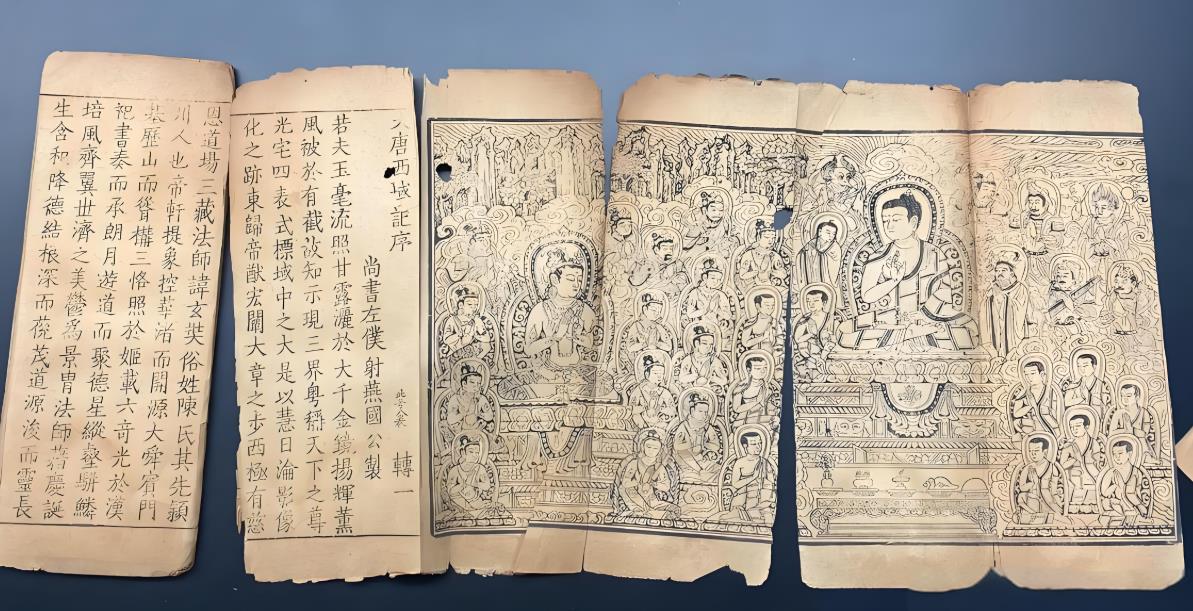 大唐西域記序 轉一
尚書左僕射燕國公製
若夫玉毫流照甘露灑於大千金鏡揚輝薰
風被於有截故知示現三界粵稱天下之尊
光宅四表式標域中之大是以慧日淪影像
化之跡東歸帝猷宏闡大章之步西極有慈
恩道場三藏法師諱玄奘俗姓陳氏其先潁
川人也帝軒提象控華渚而開源大舜賓門
基歷山而聳構三恪照於姬載六奇光於漢
祀書奏而承朗月遊道而聚德星縱壑駢鱗
培風齊翼世濟之美鬱爲景胄法師藉慶誕
生含和降德結根深而葰茂道源浚而靈長